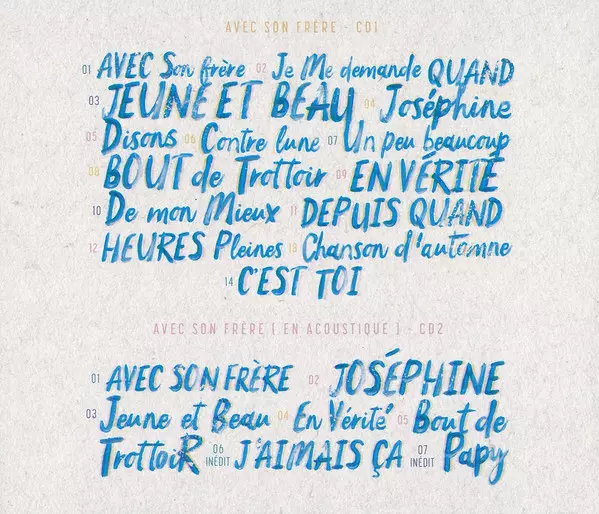 AVEC SON FRÈRE - CD1
01 AVEC Son frère 02 Je Me demande QUAND
03 JEUNE ET BEAU 04 Joséphine
05 Disons 06 Contre lune 07 Un peu beaucoup
08 BOUT de Trottoir 09 EN VÉRITÉ
10 De mon Mieux 11 DEPUIS QUAND
12 HEURES Pleines 13 Chanson d'automne
14 C'EST TOI
AVEC SON FRÈRE [ EN ACOUSTIQUE ] - CD2
01 AVEC SON FRÈRE 02 JOSÉPHINE
03 Jeune et Beau 04 En Vérité 05 Bout de
TrottoiR 06 INÉDIT J'AIMAIS ÇA 07 INÉDIT Papy